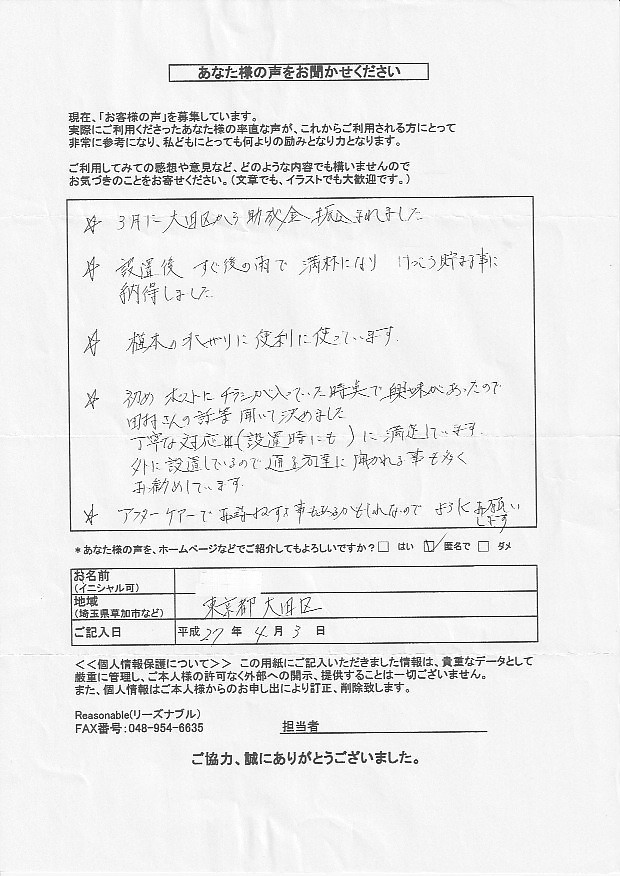 あなた様の声をお聞かせください
現在、「お客様の声」を募集しています。
実際にご利用くださったあなた様の率直な声が、これからご利用される方にとって
非常に参考になり、私どもにとっても何よりの励みとなり力となります。
ご利用してみての感想や意見など、どのような内容でも構いませんので
お気づきのことをお寄せください。(文章でも、イラストでも大歓迎です。)
☆ 3月に大田区から助成金振込まれました
☆ 設置後 すぐ後の雨で 満杯になり けっこう貯まる事に
納得しました
☆ 植木の水やりに便利に使っています.
☆ 初め ポストにチラシが入っていた時点で興味があったので
田村さんの話等聞いて決めました
丁寧な対応(設置時にも)に満足しています.
外に設置しているので通る方達に聞かれる事も多く
お勧めしています.
☆ アフターケアーでお尋ねする事もあるかもしれないので よろしくお願い
します
*あなた様の声を、ホームページなどでご紹介してもよろしいですか?□ はい ☑ 匿名で □ ダメ
お名前
(イニシャル可)
地域
(埼玉県草加市など) 東京都 大田区
ご記入日 平成 27 年 4 月 3 日
<<個人情報保護について>> この用紙にご記入いただきました情報は、貴重なデータとして
厳重に管理し、ご本人様の許可なく外部への開示、提供することは一切ございません。
また、個人情報はご本人様からのお申し出により訂正、削除致します。
Reasonable(リーズナブル)
FAX番号:048-954-6635 担当者
ご協力、誠にありがとうございました。